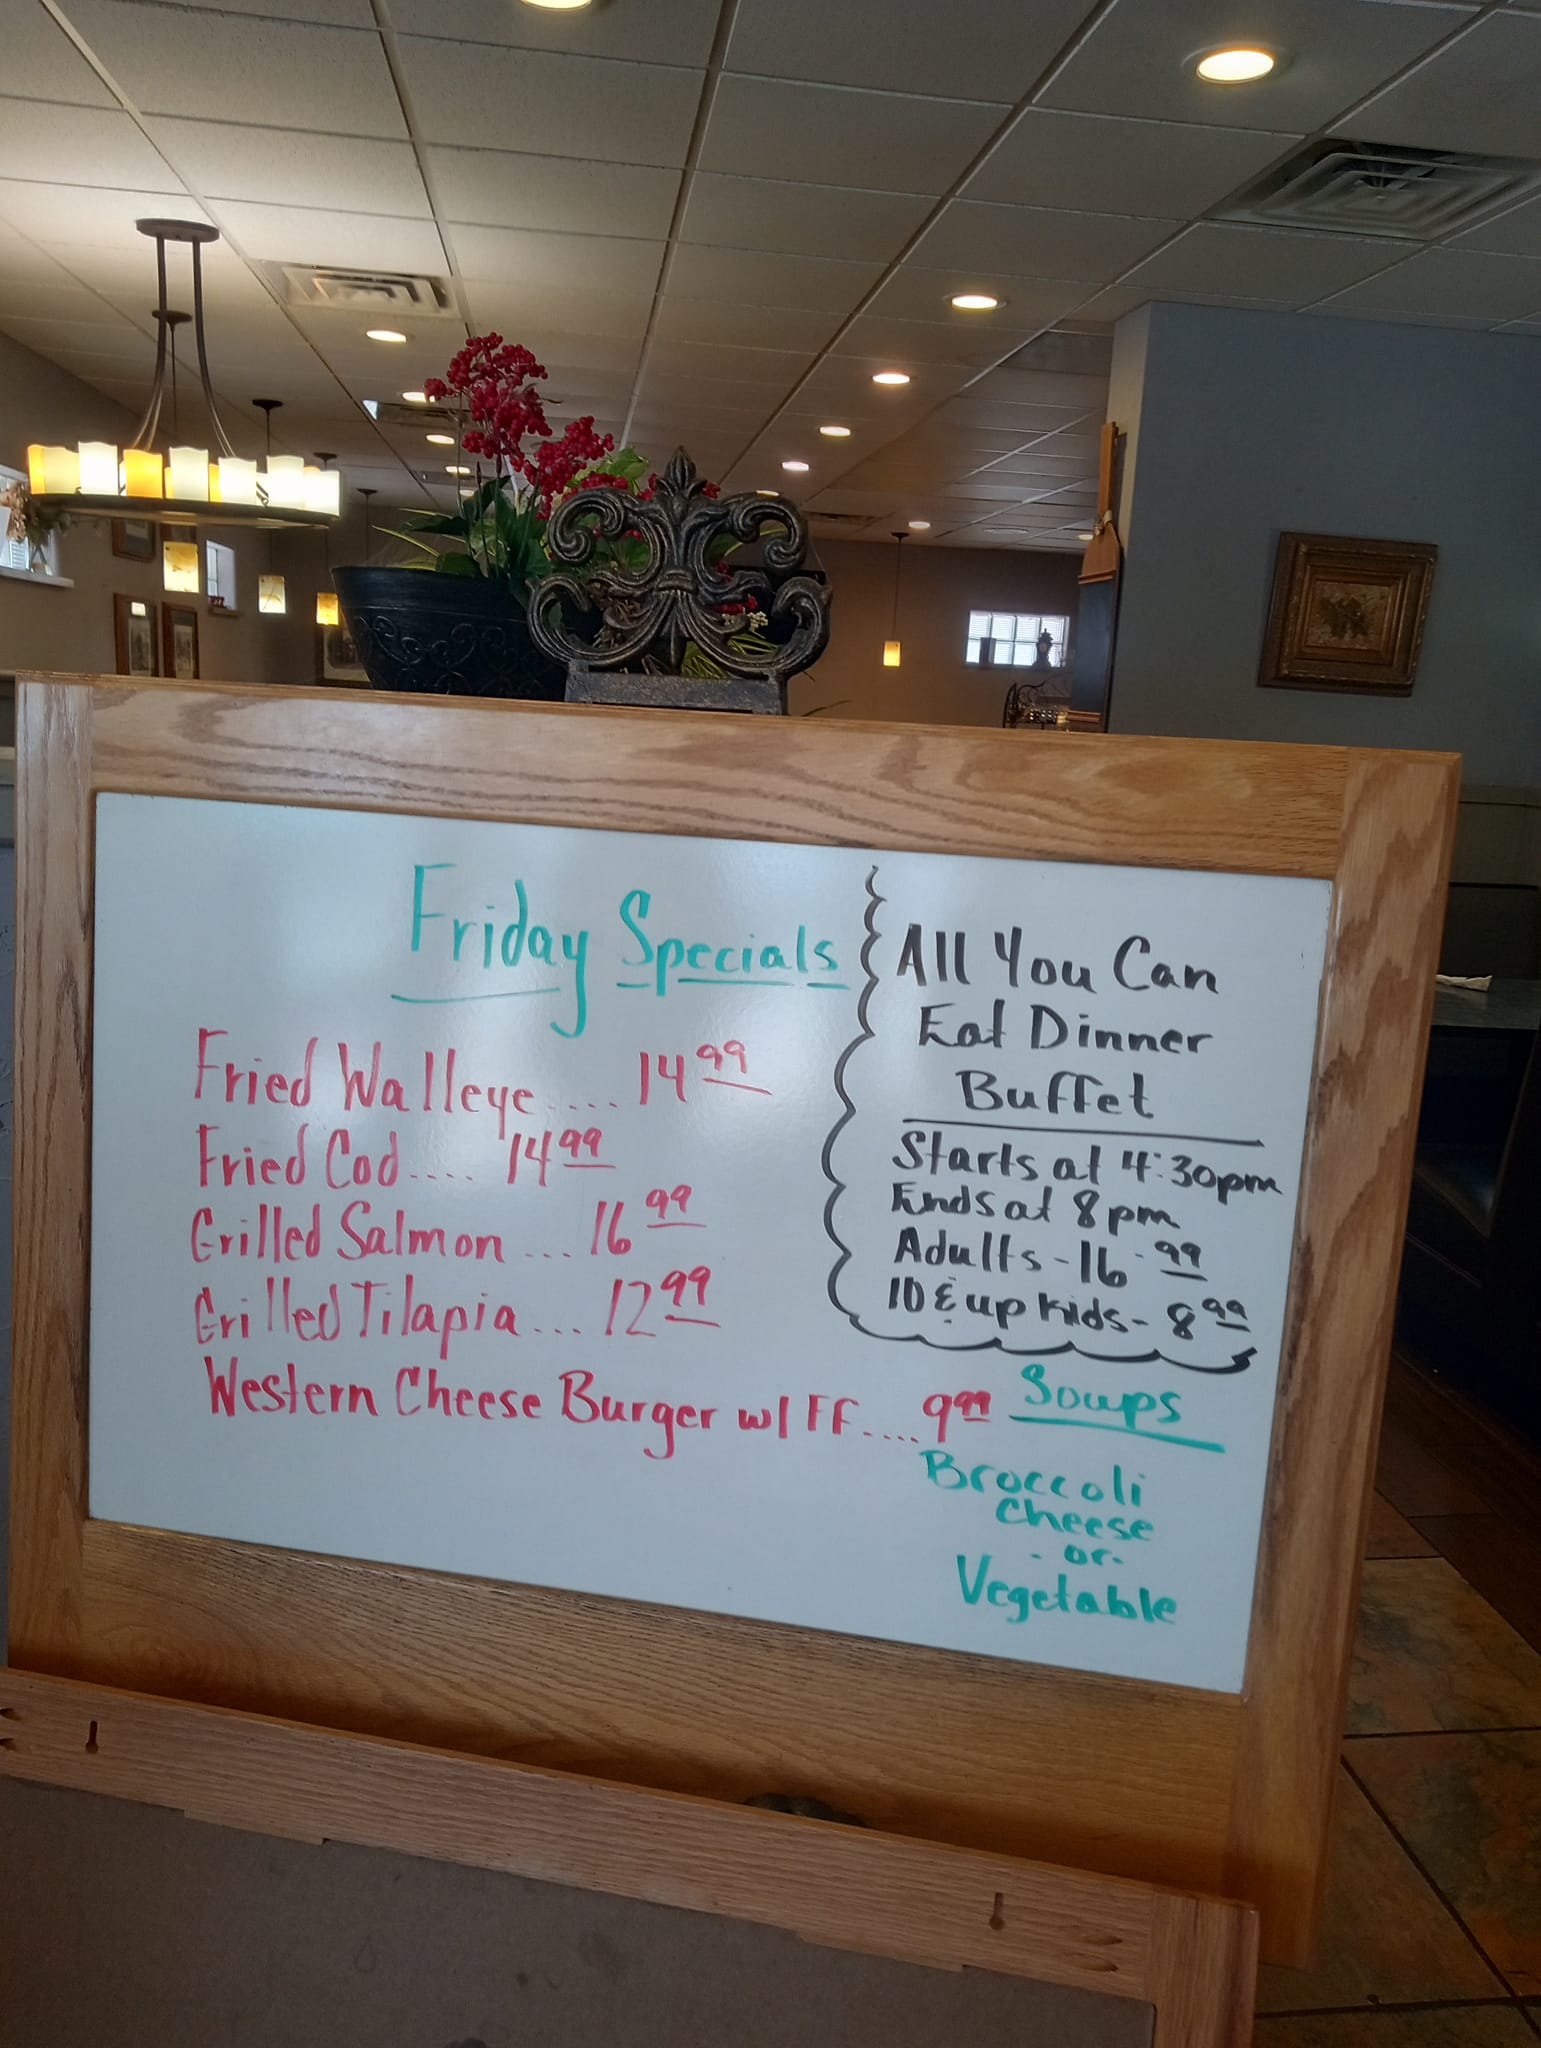 Friday Specials
Fried Walleye.... 14 99
Fried Cod.... 14 99
Grilled Salmon ... 16 99
Grilled Tilapia... 12 99
Western Cheese Burger w/ FF.... 9 99
All You Can
Eat Dinner
Buffet
Starts at 4:30pm
Ends at 8pm
Adults - 16 - 99
10 & up kids - 8 99
Soups
Broccoli
Cheese
- or -
Vegetable